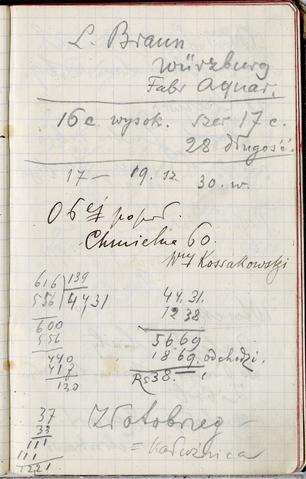 L. Braun
Würzburg
Fabr Aquar.
16 c wysok. szer 17 c.
28 długość
17 — 19. 12 30. w.
O 6ej popoł.
Chmielna 60.
Kossakowski
616 | 139
556 | 4,431
600
556
440
417
130
44.31.
12 38
56 69
18 69. odchodzi.
Rs 38.
37
33
111
111
1221
Złotobrzeg —
= Karwźnica